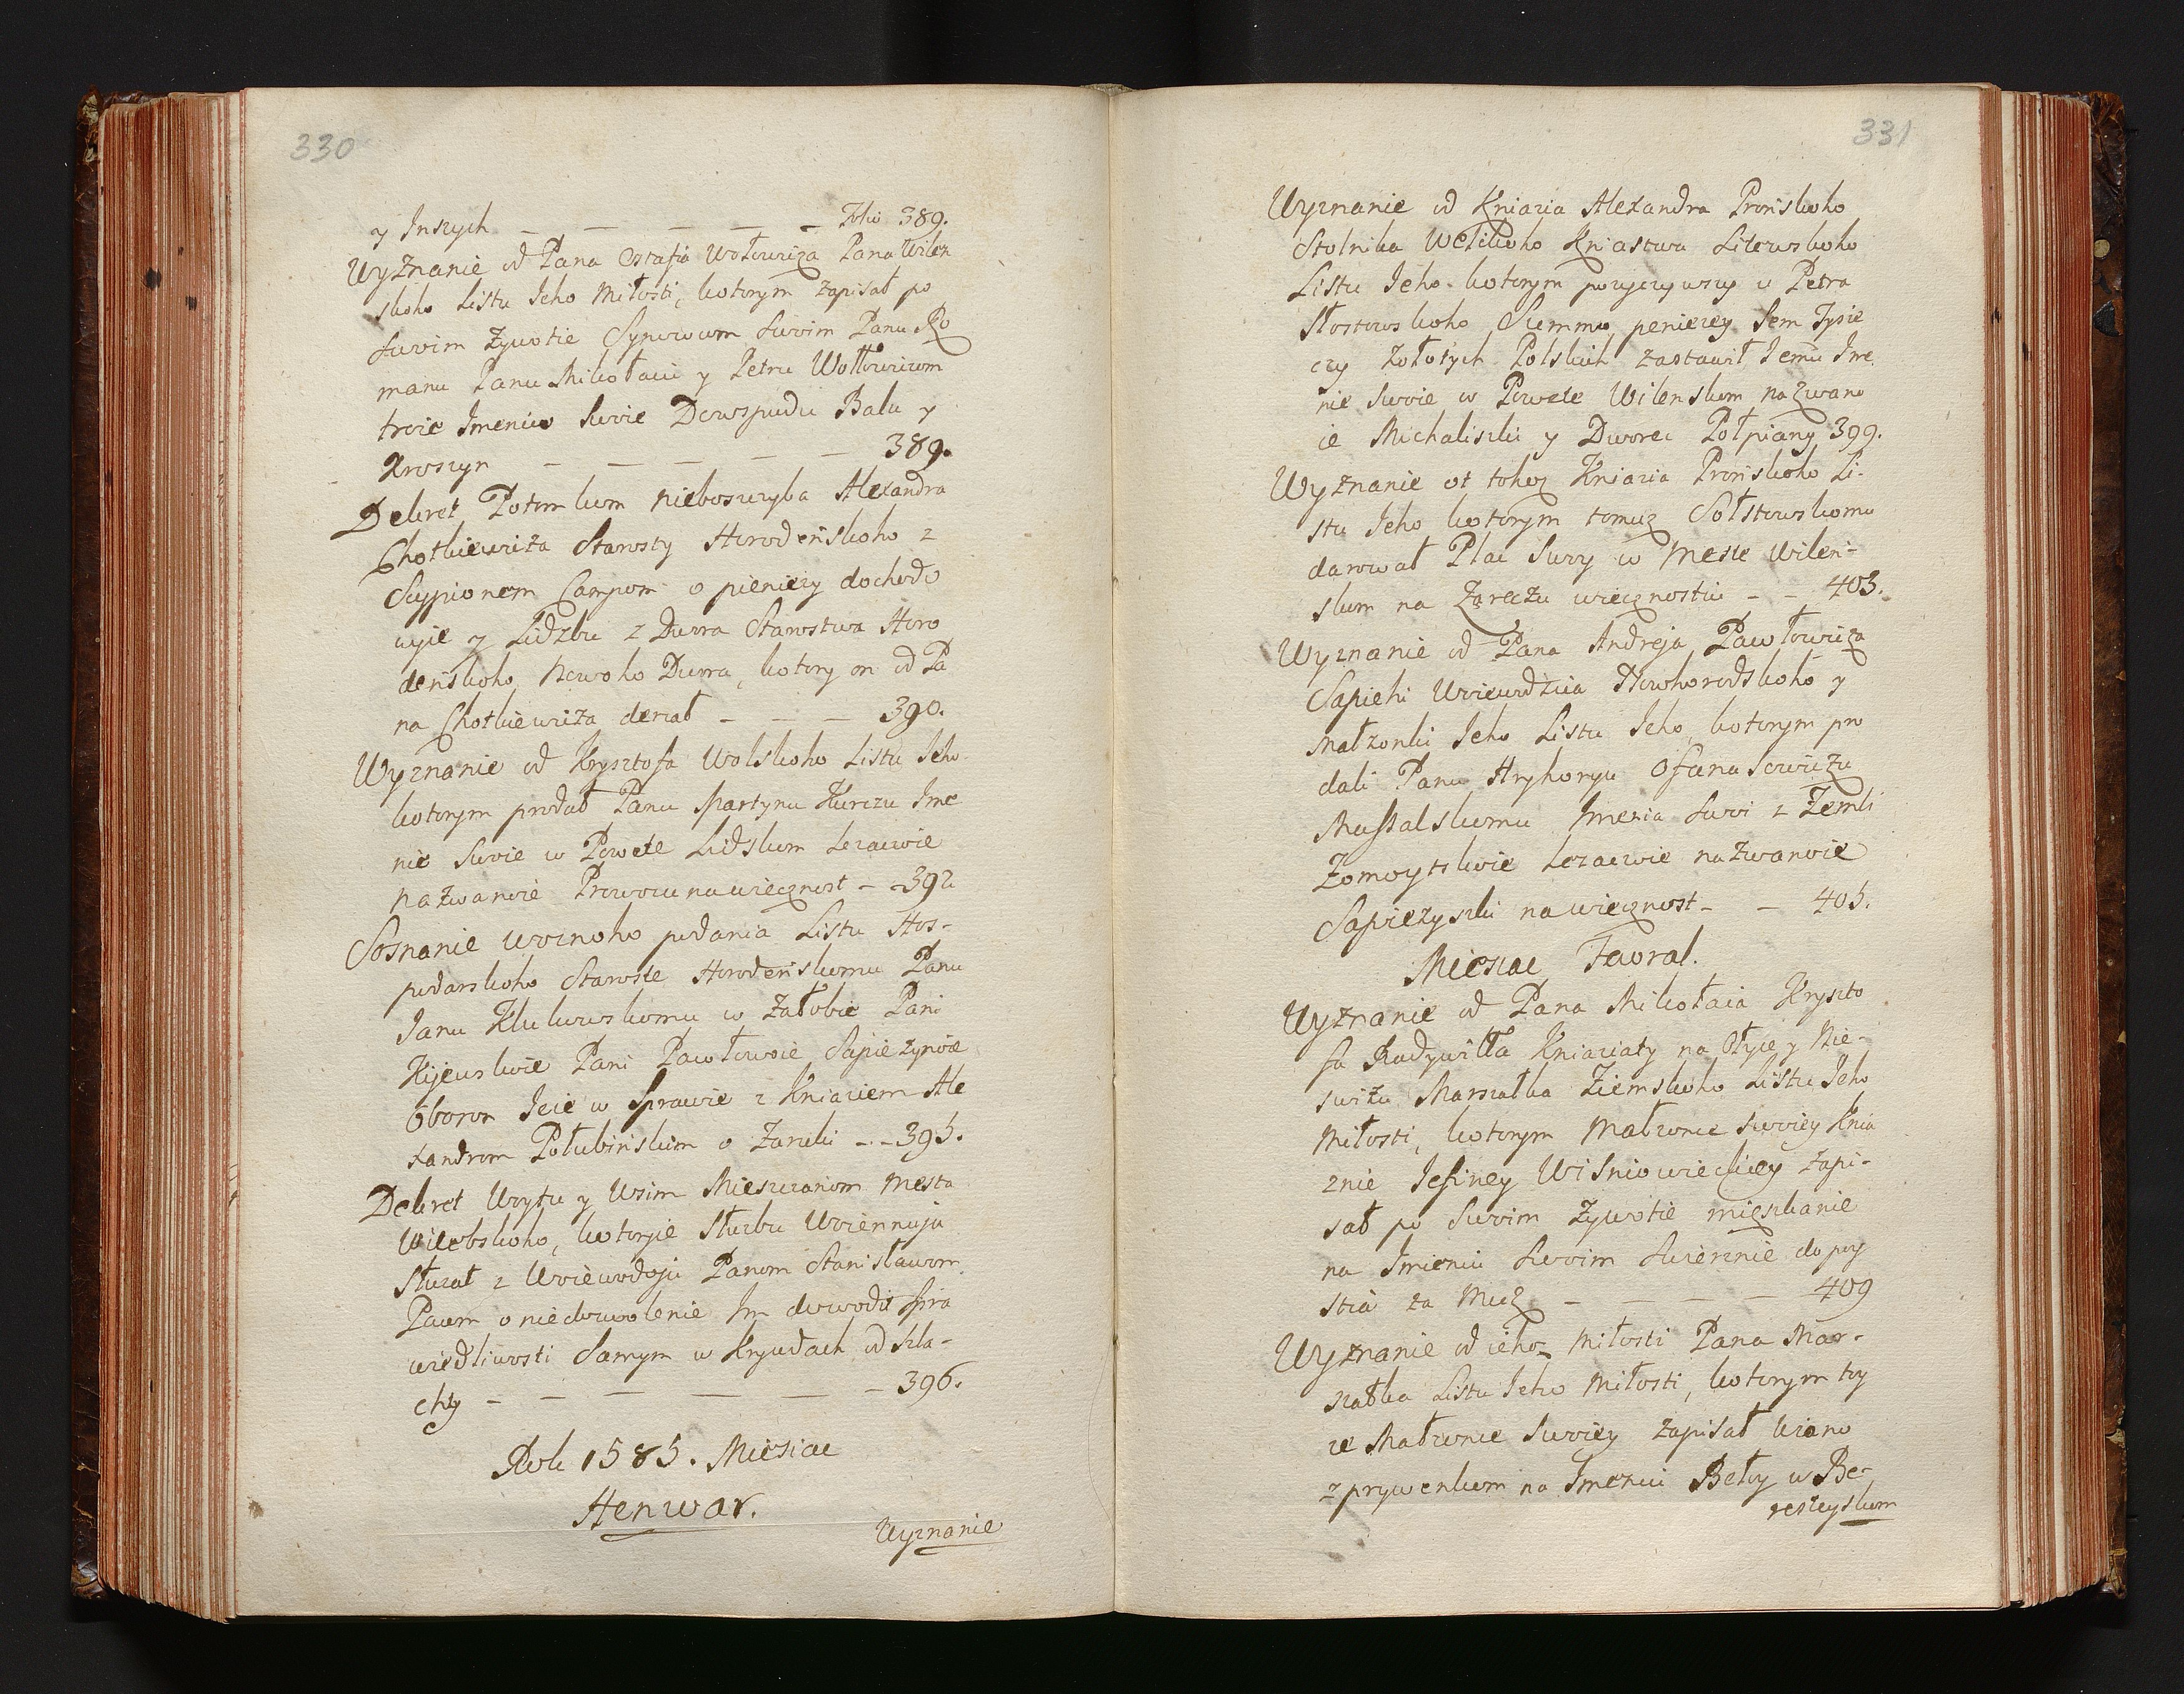 330
y Inszych — — — — — Folii 389.
Wyznanie od Pana Ostafia Wołowicza Pana Wilen
skoho Listu Jeho Miłosti, kotorym zapisał po
swoim Zywotie Synowcom swoim Panu Ro
manu Panu Mikołaiu y Petru Wołłowiczom
troie Imeniie swoie Dowspudu Balu y
Kroszyn — — — — — 389.
Dekret Potomkom nieboszczyka Alexandra
Chotkiewicza Starosty Horodeńskoho z
Scypionem Campom o pieniezy dochodo
wyie y Lidzbu z Dwora Starostwa Horo
deńskoho Nowoho Dwora, kotory on od Pa
na Chotkiewicza derzał — — — 390.
Wyznanie od Krysztofa Wolskoho Listu Jeho
kotorym prodał Panu Martynu Kurczu Ime
nie swoie w Powete Lidskom Lezaczoie
nazwanoie Prowozu na wiecznost — 392
Soznanie woznoho podania Listu Hos-
podarskoho Staroste Horodeńskomu Panu
Janu Klukowskomu w załobie Pani
Kijewskoie Pani Pawłowoie Sapiezynoie
Oboron Jeie w Sprawie z Kniaziem Ale
xandrom Połubińskim o Zaruki — 395.
Dekret Woytu y Wsim Mieszczanom Mesta
Witebskoho, kotoryie Słuzbu Woiennuju
Słuzat z Woiewodoju Panom Stanisławom
Pacem o niedozwolenie Im dowodit Spra
wiedliwosti Samym w Krywdach od Szla-
chty — — — — — 396.
Rok 1585. Miesiac
Henwar.
Wyznanie
331
Wyznanie od Kniazia Alexandra Prońskoho
Stolnika Welikoho Kniastwa Litewskoho
Listu Jeho kotorym pozyczywszy u Petra
Słostowskoho Summu penieizey Sem Tysie
czy Zołotych Polskich zastawił Jemu Ime
nie swoie w Powete Wilenskom nazwano
ie Michaliszki y Dworec Połpiany 399.
Wyznanie ot tohoz Kniazia Prońskoho Li-
stu Jeho kotorym tomuz Sołstowskomu
darował Plac Swoy w Meste Wilen-
skom na Zareczu wiecznostiu — — 403.
Wyznanie od Pana Andreja Pawłowicza
Sapiehi Woiewodzica Nowhorodskoho y
Małzonki Jeho Listu Jeho, kotorym pro
dali Panu Hryhoryu Ofanasowiczu
Massalskomu Imenia swoi z Zemli
Zomoytskoie Lezaczoie nazwanoie
Sapiezyszki na wiecznost — — 405.
Miesiac Fewral.
Wyznanie od Pana Mikołaia Kryszto
fa Radywiłła Kniaziaty na Ołyce y Nie-
swizu Marszałka Ziemskoho Listu Jeho
Miłosti, kotorym Małzonce swoiey Knia
znie Jefiney Wiśniowieckiey zapi-
sał po swoim Zywotie mieszkanie
na Imieniu swoim Swierznie do poy
stia za Muz — — — — 409
Wyznanie od ieho Miłosti Pana Mar-
szałka Listu Jeho Miłosti, kotorym toy
ze Małzonce swoiey zapisał wieno
z prywenkom na Imeniu Bełoy w Be-
resteyskom